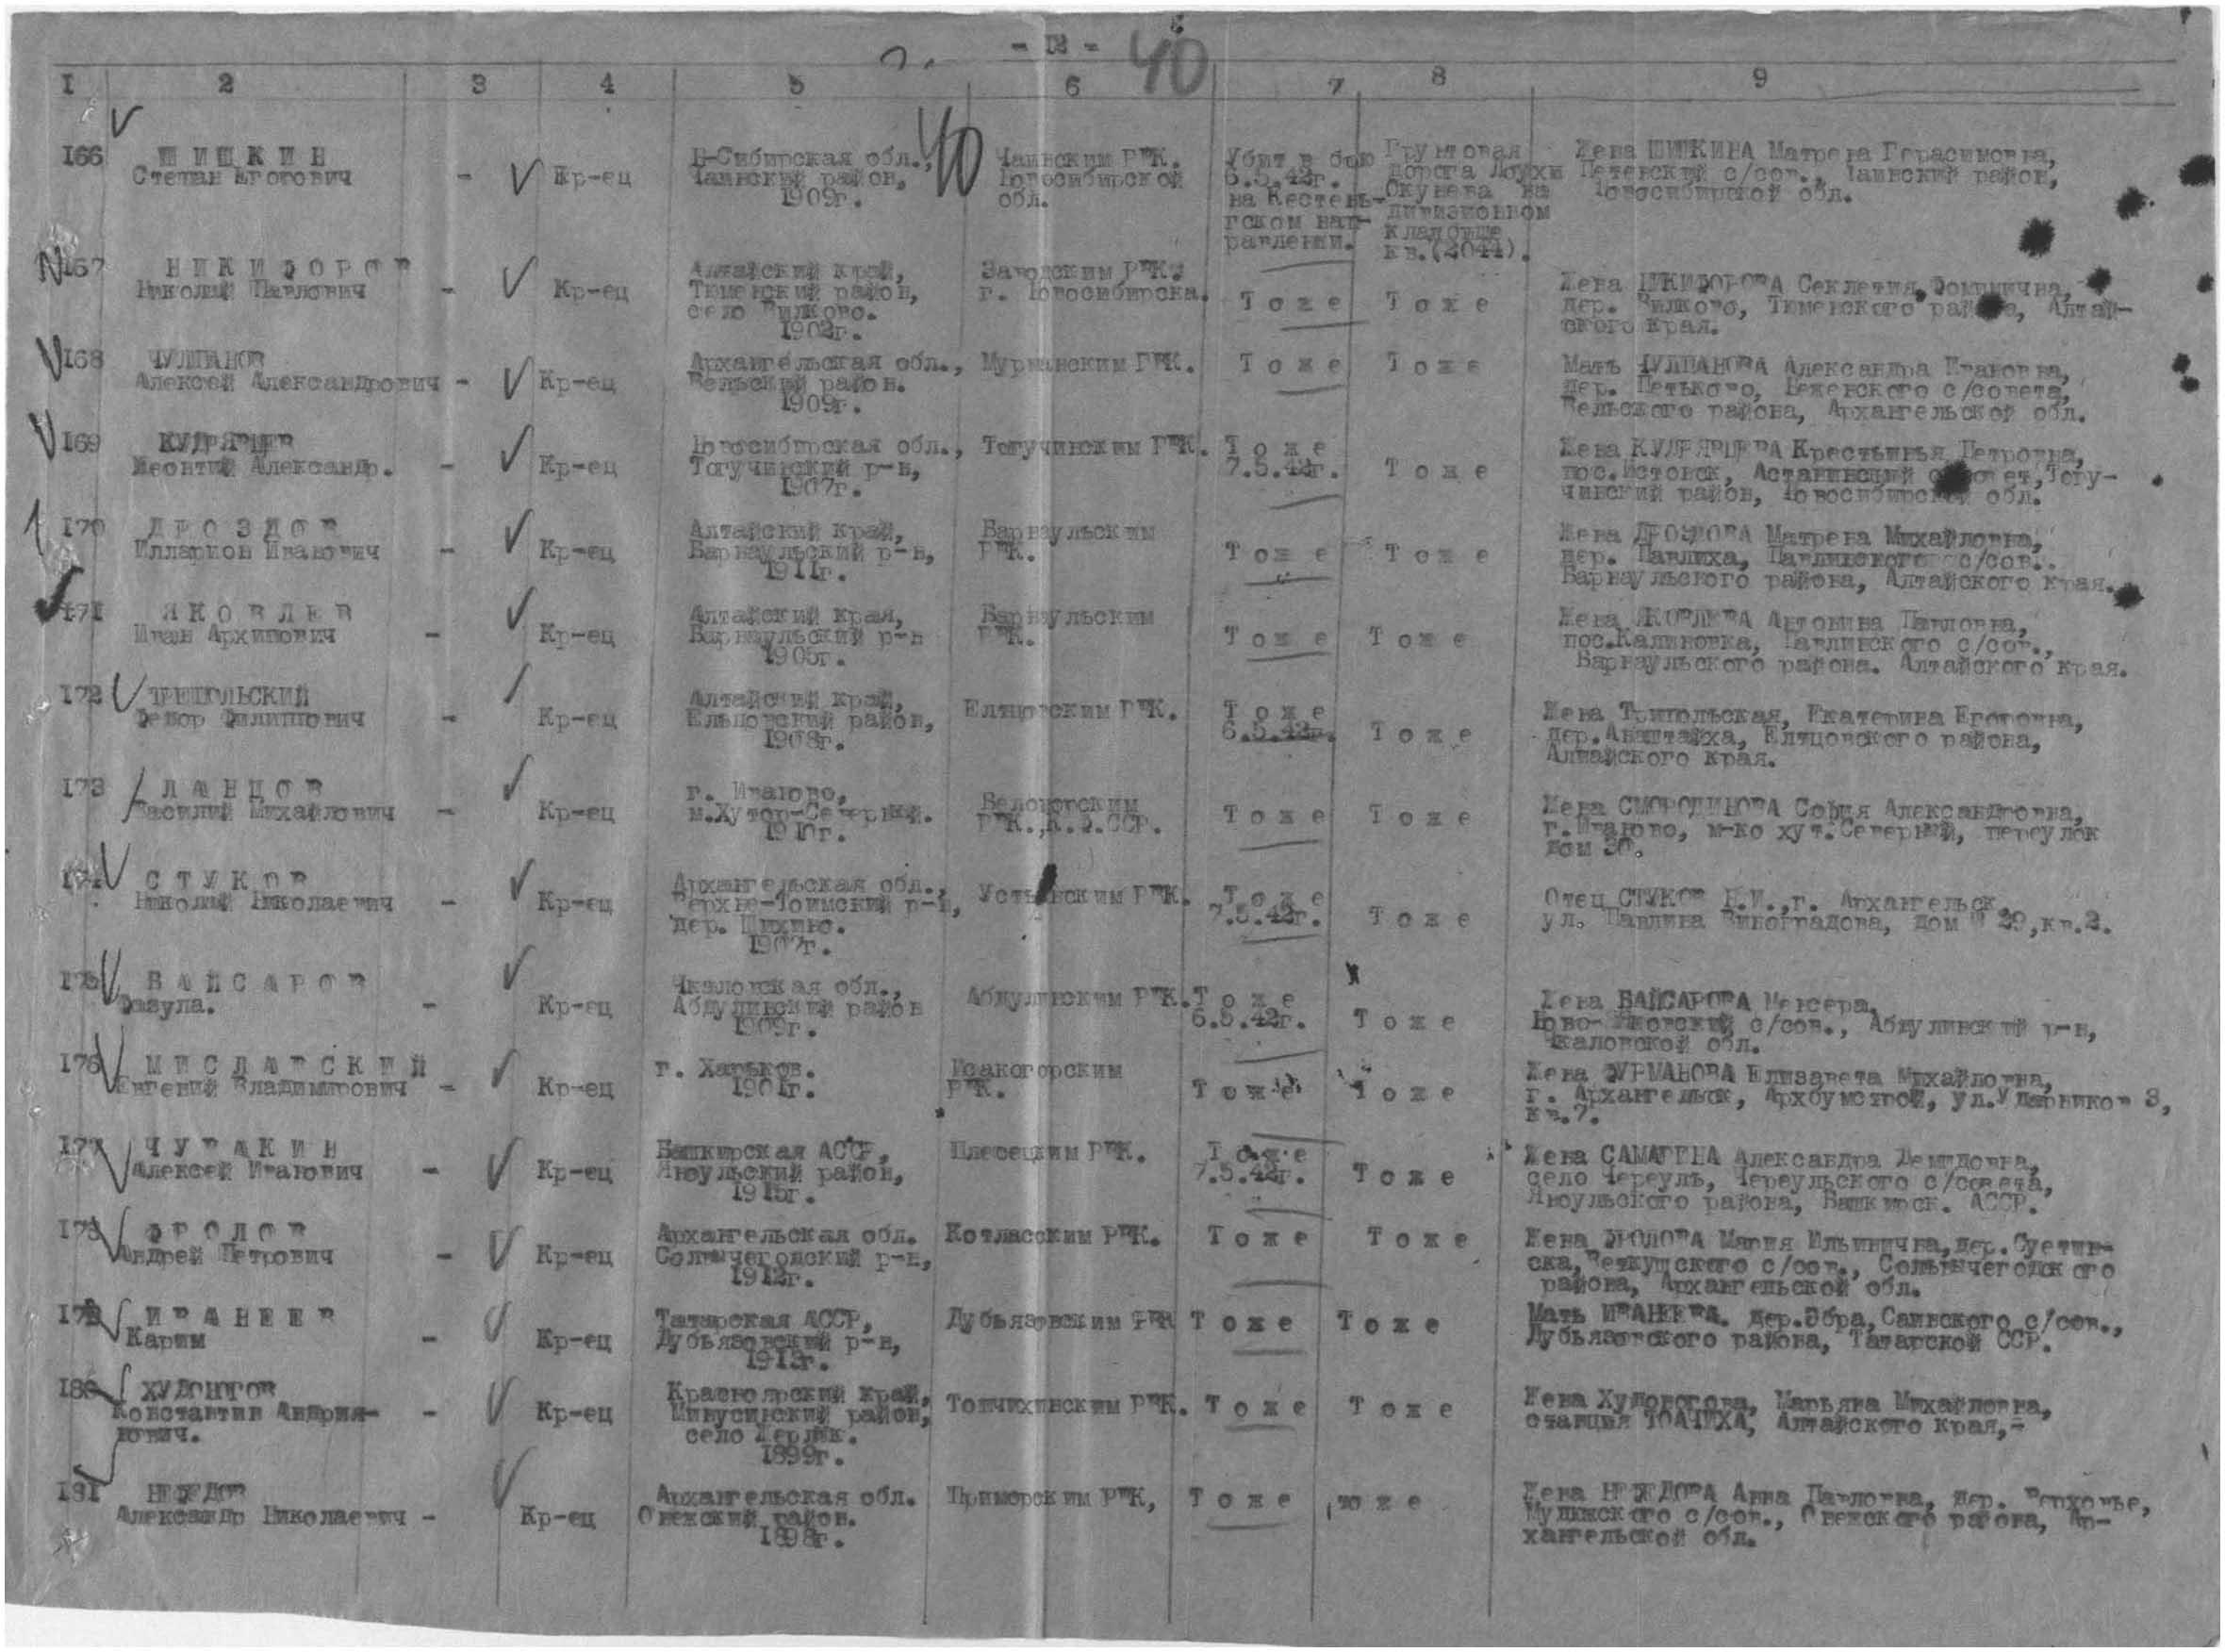 - 12 -
40
I 2 3 4 5 6 7 8 9
166 ШИШКИН
Степан Егорович - Кр-ец
Н-Сибирская обл., Чаинский район, 1909г.
40
Чаинским РВК. Новосибирской обл.
Убит в бою 6.5.42г. на Кестень-гском нап-равлении.
Грунтовая дорога Лоухи Окунева на дивизионном кладбище кв.(2044).
Жена ШИШКИНА Матрена Герасимовна,
с/сов., Чаинский район,
Новосибирской обл.
167 НИКИФОРОВ
Николай Павлович - Кр-ец
Алтайский край, Тюменский район, село Вилково. 1902г.
Заводским РВК. г. Новосибирска.
Тоже Тоже
Жена НИКИФОРОВА Секлетия
дер. Вилково, Тюменского района, Алтай-
ского края.
168 ЧУЛПАНОВ
Алексей Александрович - Кр-ец
Архангельская обл., Вельский район. 1909г.
Мурманским РВК.
Тоже Тоже
Мать ЧУЛПАНОВА Александра Ивановна,
дер. Петьково, с/совета,
Вельского района, Архангельской обл.
169 КУДРЯВЦЕВ
Леонтий Александр. - Кр-ец
Новосибирская обл., Тогучинский р-н, 1907г.
Тогучинским РВК.
Тоже 7.5.42г. Тоже
Жена КУДРЯВЦЕВА Крестьинья Петровна,
пос.Истовск, Астанинский совет, Тогу-
чинский район, Новосибирской обл.
170 ДРОЗДОВ
Илларион Иванович - Кр-ец
Алтайский край, Барнаульский р-н, 1911г.
Барнаульским РВК.
Тоже Тоже
Жена ДРОЗДОВА Матрена Михайловна,
дер. Павлиха, Павлинского с/сов.
Барнаульского района, Алтайского края.
171 ЯКОВЛЕВ
Иван Архипович - Кр-ец
Алтайский края, Барнаульский р-н 1905г.
Барнаульским РВК.
Тоже Тоже
Жена ЯКОВЛЕВА Антонина Павловна,
пос.Калиновка, Павлинского с/сов.,
Барнаульского района. Алтайского края.
172 ТРИПОЛЬСКИЙ
Федор Филиппович - Кр-ец
Алтайский край, Ельцовский район, 1908г.
Елтцовским РВК.
Тоже 6.5.42г. Тоже
Жена Трипольская, Екатерина Егоровна,
дер. Елтцовского района,
Алтайского края.
173 ЛАНЦОВ
Василий Михайлович - Кр-ец
г. Иваново, м.Хутор-Северный. 1910г.
Беломорским РВК.,К.Ф.ССР.
Тоже Тоже
Жена СМОРОДИНОВА София Александровна,
г.Иваново, м-ко хут.Северный, переулок
дом 30.
174 СТУКОВ
Николай Николаевич - Кр-ец
Архангельская обл., Верхне-Тоимский р-н, 1907г.
РВК.
Тоже 7.5.42г. Тоже
Отец СТУКОВ Н.И.,г. Архангельск,
ул. Павлина Виноградова, дом № 29,кв.2.
175 БАЙСАРОВ
- Кр-ец
Чкаловская обл., Абдулинский район 1909г.
Абдулинским РВК.
Тоже 6.5.42г. Тоже
Жена БАЙСАРОВА Менсера,
с/сов., Абдулинский р-н,
Чкаловской обл.
176 МИСЛАВСКИЙ
Евгений Владимирович - Кр-ец
г. Харьков. 1901г.
Исакогорским РВК.
Тоже Тоже
Жена ФУРМАНОВА Елизавета Михайловна,
г. Архангельск, Архбумстрой, ул.Ударников 3,
кв.7.
177 ЧУРАКИН
Алексей Иванович - Кр-ец
Башкирская АССР, Янаульский район, 1915г.
Плесецким РВК.
Тоже 7.5.42г. Тоже
Жена Александра Демидовна,
село Череуль, Череульского с/совета,
Янаульского района, Башкирск. АССР.
178 ФРОЛОВ
Андрей Петрович - Кр-ец
Архангельская обл. Сольвычегодский р-н, 1912г.
Котласским РВК.
Тоже Тоже
Жена ФРОЛОВА Мария Ильинична,дер.
с/сов., Сольвычегодского
района, Архангельской обл.
179 ИВАНЕЕВ
Карим - Кр-ец
Татарская АССР, Дубьязовский р-н, 1913г.
Дубьязовским РВК
Тоже Тоже
Мать ИВАНЕЕВА. дер.Эбра,Саинского с/сов.,
Дубьязовского района, Татарской ССР.
180 ХУДОНОГОВ
Константин Андрия-
нович. - Кр-ец
Красноярский край, Минусинский район, село 1899г.
Топчихинским РВК.
Тоже Тоже
Жена Худоногова, Марьяна Михайловна,
станция ТОПЧИХА, Алтайского края,-
181 НЕФЕДОВ
Александр Николаевич - Кр-ец
Архангельская обл. Онежский район. 1898г.
Приморским РВК,
Тоже тоже
Жена НЕФЕДОВА Анна Павловна, дер. Верховье,
с/сов., Онежского района, Ар-
хангельской обл.